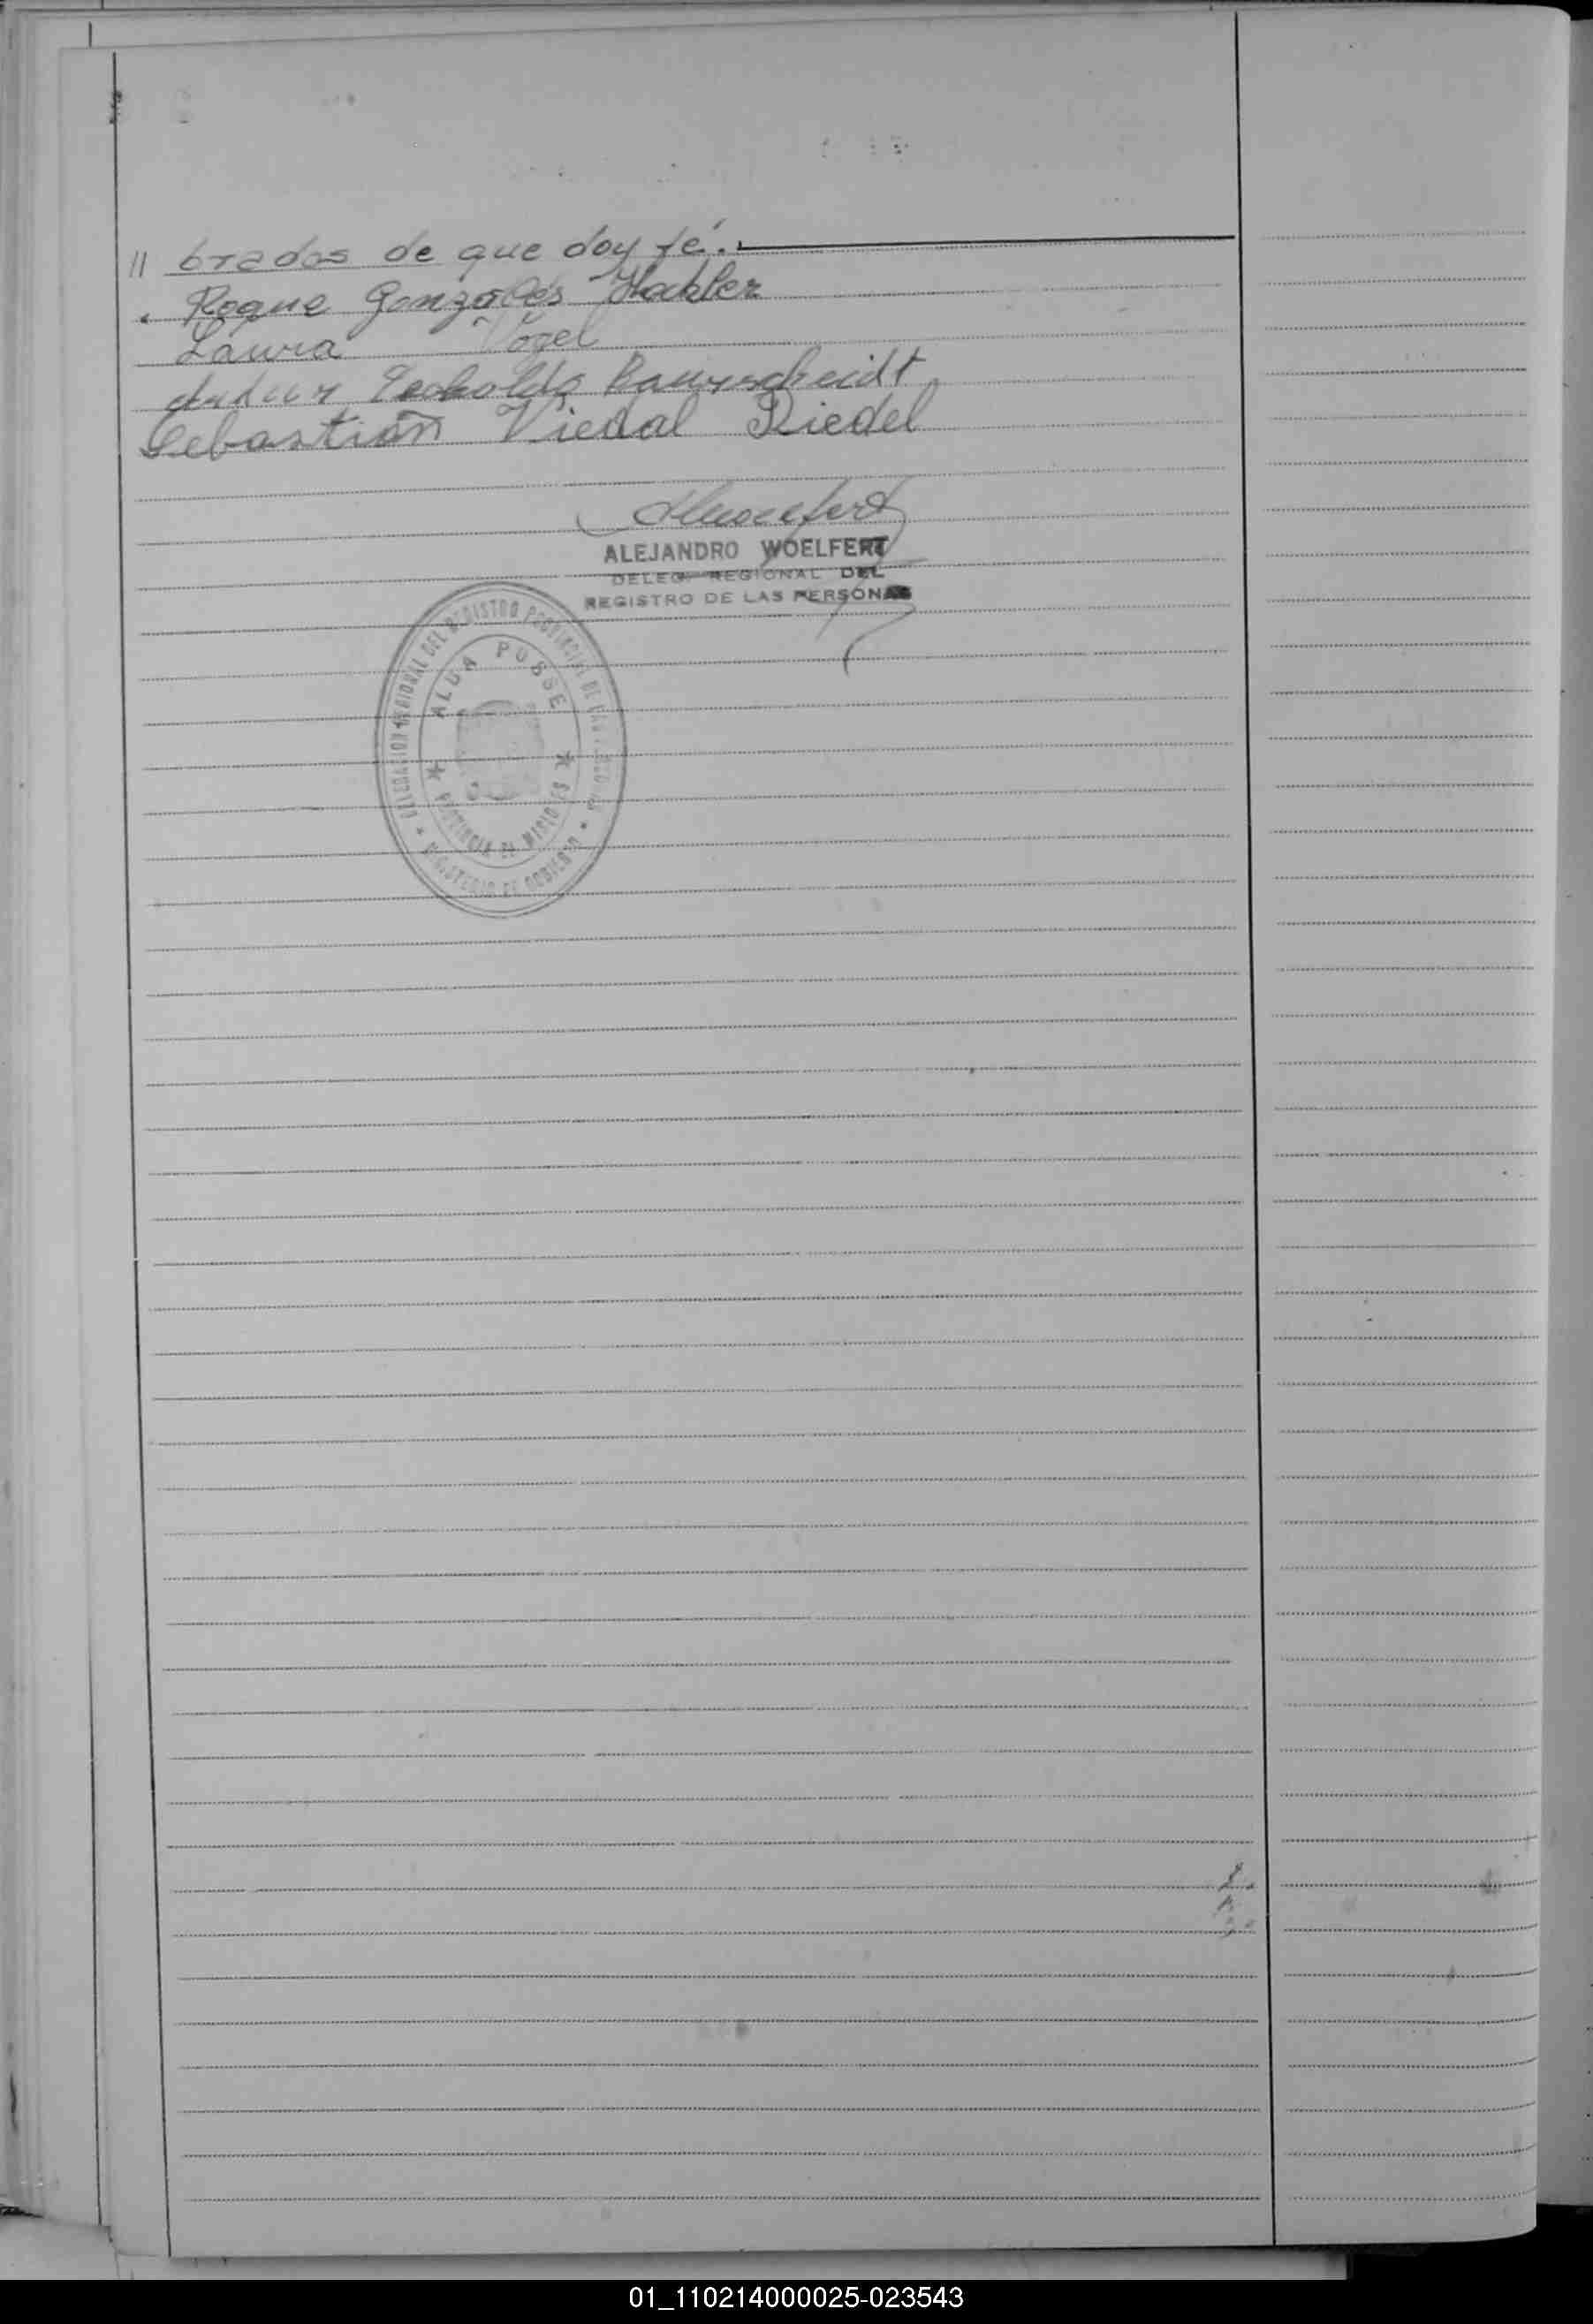 // brados de que doy fé.
Roque Gonzáles Hackler
Laura Vogel
Leopoldo
Sebastián Viedal Riedel
ALEJANDRO WOELFERT
DELEG. REGIONAL DEL
REGISTRO DE LAS PERSONAS
DELEGACION REGIONAL DEL REGISTRO PROVINCIAL DE LAS PERSONAS
ALBA POSSE
PROVINCIA DE MISIONES
MINISTERIO DE GOBIERNO
01_110214000025-023543